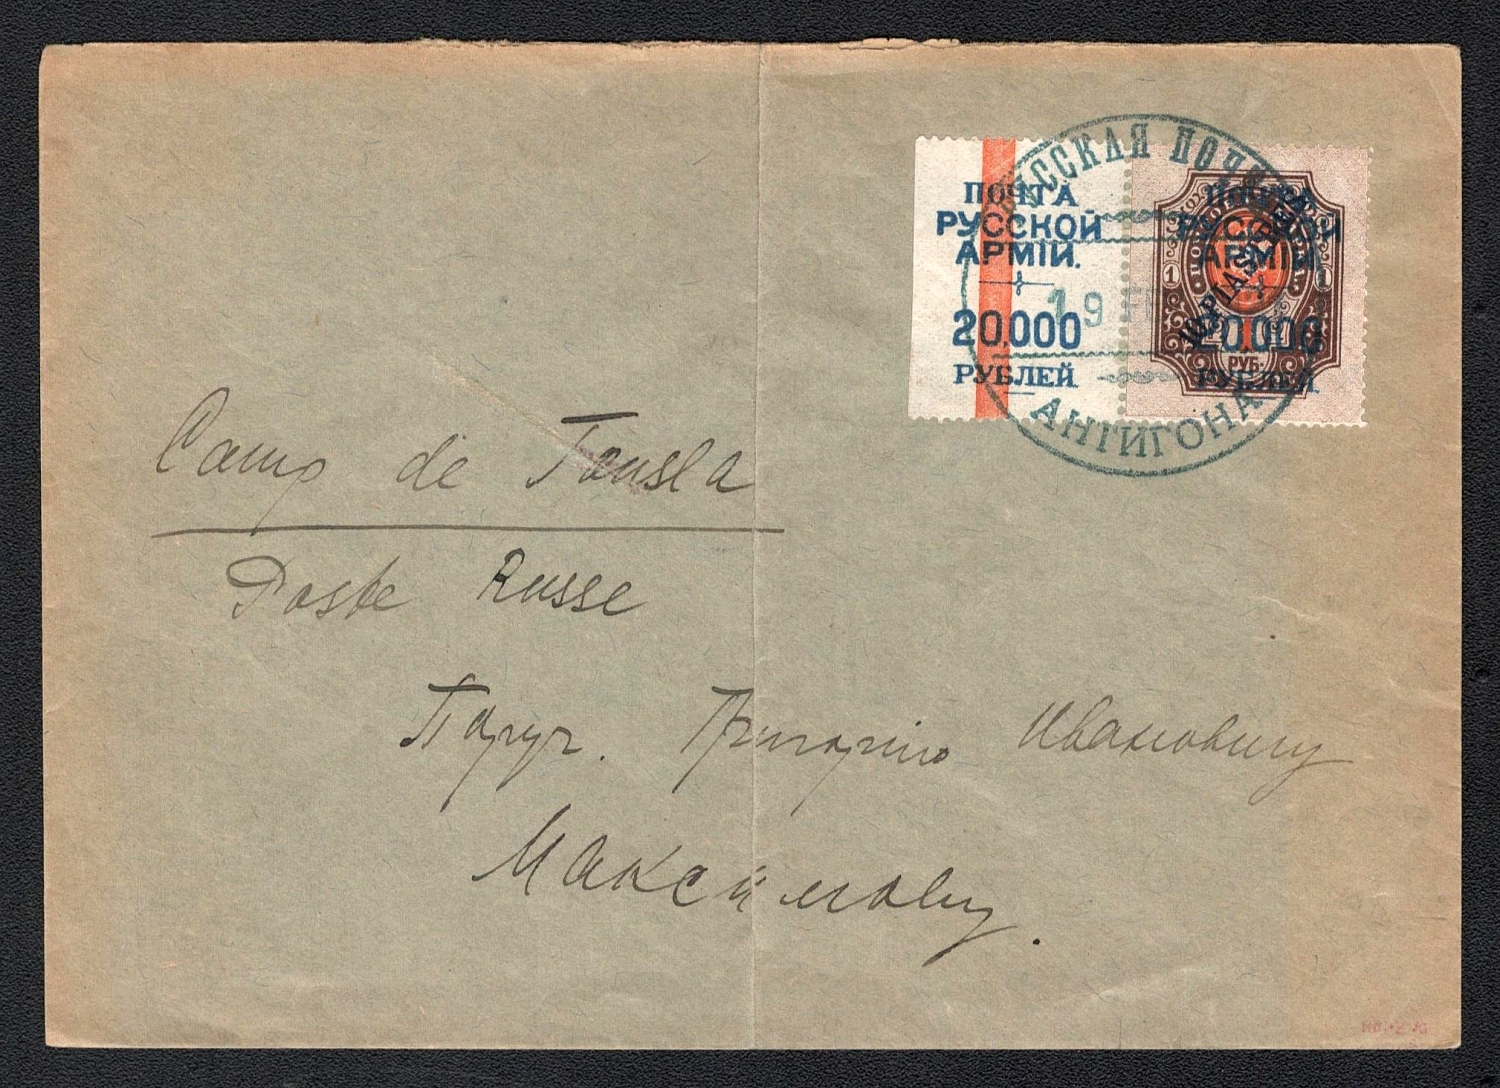 РУССКАЯ ПОЧТА
ПОЧТА
РУССКОЙ
АРМІИ.
20.000
РУБЛЕЙ
ПОЧТА
РУССКОЙ
АРМІИ.
20.000
РУБЛЕЙ
1 1
РУБ.
19
АНТИГОНА
Camp de Tousla
Poste Russe
Поруч. Григорію Ивановичу
Максимову.